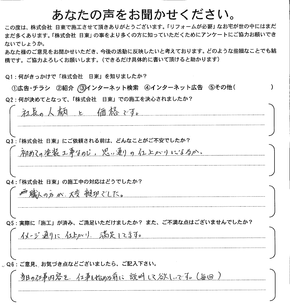 あなたの声をお聞かせください。
この度は、「株式会社 日東」で施工させて頂きありがとうございます。「リフォームが必要」なお宅が世の中にはまだ
まだ多くあります。「株式会社 日東」の事をより多くの方に知っていただくためにアンケートにご協力お願いでき
ないでしょうか。
あなた様のご意見をお聞かせいただき、今後の活動に反映したいと考えております。どのような些細なことでも結
構です。ご協力よろしくお願いします。(できるだけ具体的に書いて頂けると助かります)
Q1:何がきっかけで「株式会社 日東」を知りましたか?
①広告・チラシ ②紹介 ③インターネット検索 ④インターネット広告 ⑤その他( )
Q2:何が決めてとなって、「株式会社 日東」での施工を決められましたか?
社長の人柄 と 価格です。
Q3:「株式会社 日東」にご依頼される前は、どんなことがご不安でしたか?
初めての塗装工事なので、思い通りの仕上がりになるか。
Q4:「株式会社 日東」の施工中の対応はどうでしたか?
職人の方が大変親切でした。
Q5:実際に「施工」が済み、ご満足いただけましたか?また、ご不満な点はございませんでしたか?
イメージ通りに仕上がり 満足してます。
Q6:ご意見、お気づき点などございましたら、ご記入下さい。
仕事内容を 仕事を始める前に 説明して欲しいです。(毎回)